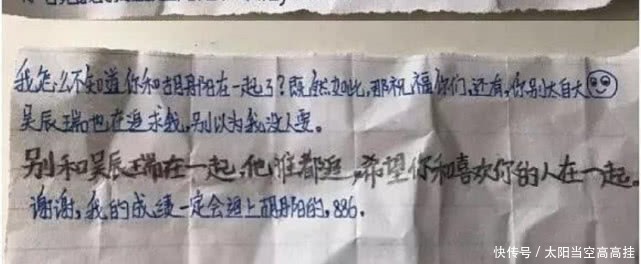 我怎么不知道你和胡丹阳在一起了?既然如此,那祝福你们,还有,你别太自大
吴辰瑞也在追求我,别以为我没人要。
别和吴辰瑞在一起,他谁都追,希望你和喜欢你的人在一起。
谢谢,我的成绩一定会追上胡丹阳的,886.
快传号/太阳当空高高挂